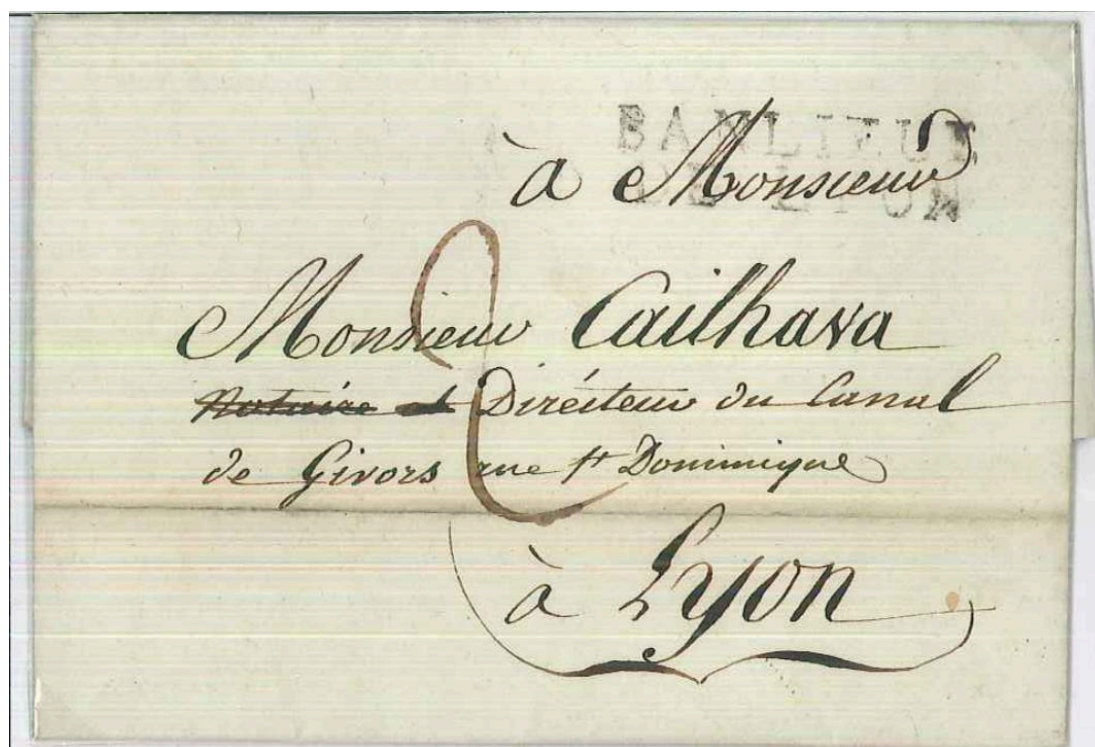 BANLIEUE
DE LYON
à Monsieur
Monsieur Cailhava
Notaire et Diréiteur du Canal
de Givors rue St Dominique
à Lyon
2